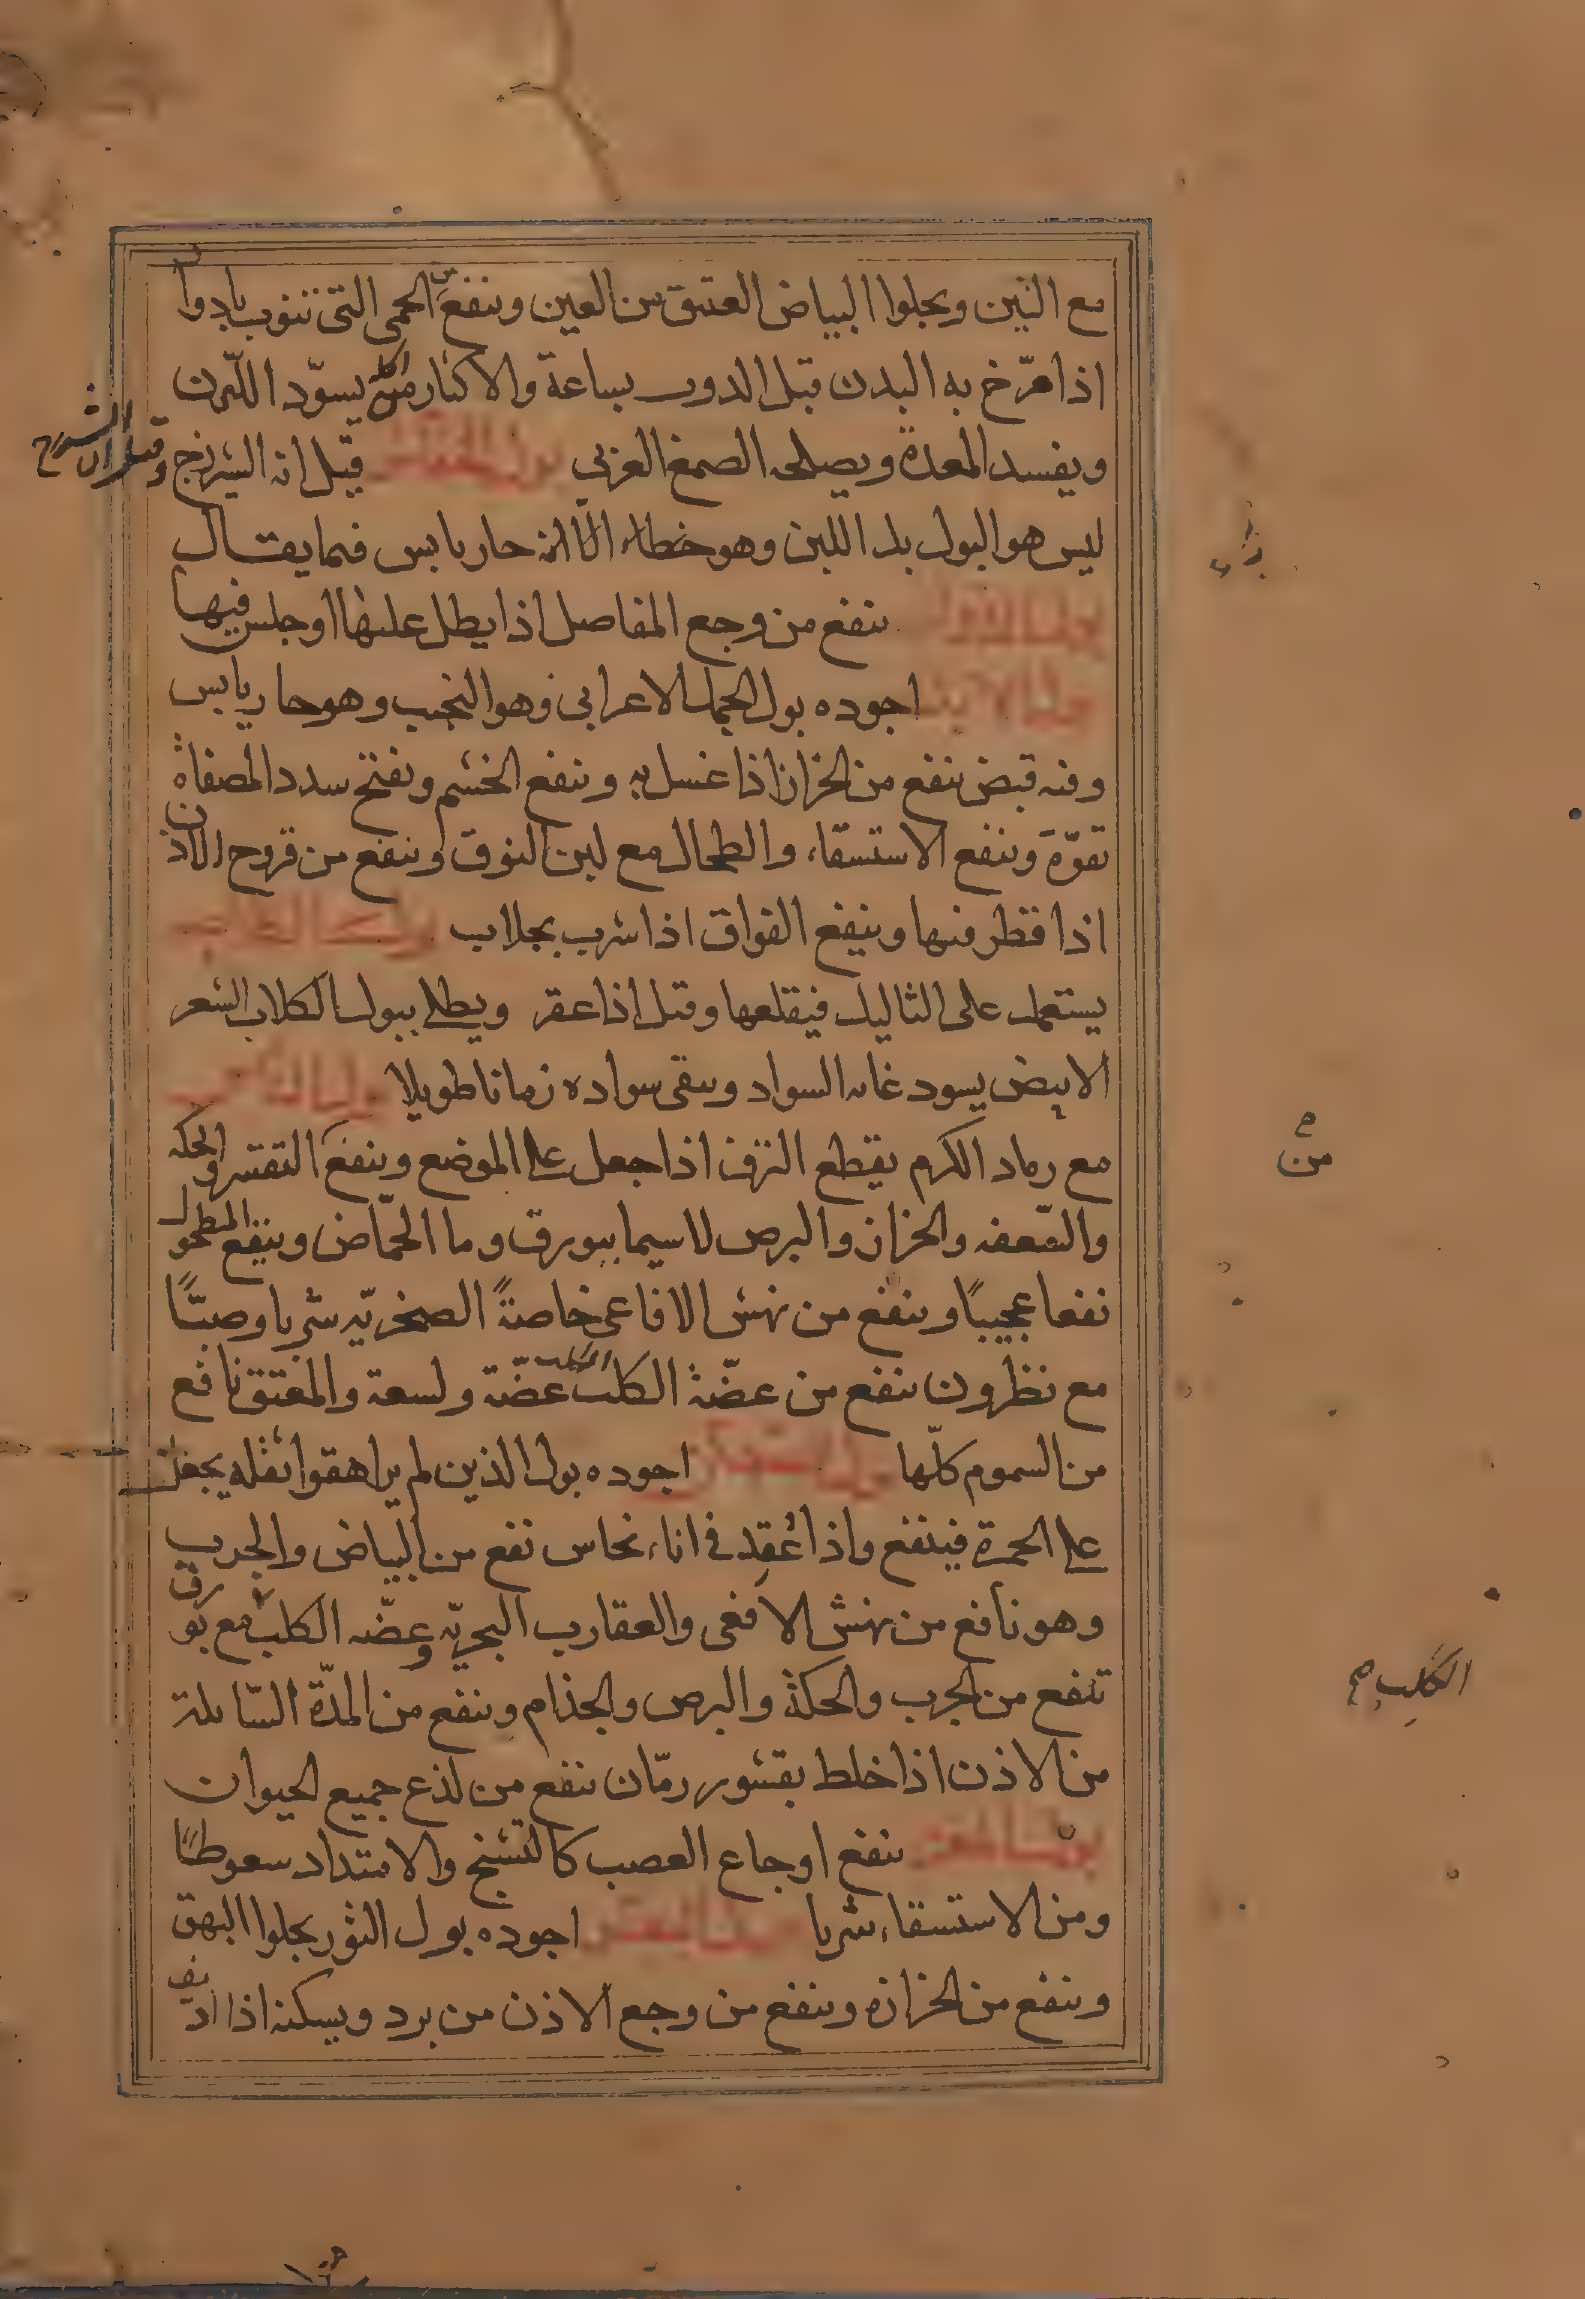 مع التين ويجلوا البياض العتيق من العين وينفع من الحمى التي تنوب بادوار
اذا مرّخ به البدن قبل الدور بساعة والاكثار من اكله يسوّد اللون
ويفسد المعدة ويصلحه الصمغ العربي بول الخفاش قيل انه الشيرزج
ليس هو البول بل اللبن وهو خطاء الا انه حار يابس فيما يقال
ينفع من وجع المفاصل اذا يطل عليها او جلس فيها
بول الابل اجوده بول الجمل الاعرابي وهو النجيب وهو حار يابس
وفيه قبض ينفع من الحزاز اذا غسل به وينفع الخشم ويفتح سدد المصفاة
بقوّة وينفع الاستسقاء والطحال مع لبن النوق وينفع من قروح الاذن
اذا قطر فيها وينفع الفواق اذا شرب بجلاب بول الكلاب
يستعمل على الثاليل فيقلعها وقيل اذا عقر ويطلى ببول الكلاب الشعر
الابيض يسود غاية السواد ويبقى سواده زمانا طويلا
مع رماد الكرم يقطع النزف اذا جعل على الموضع وينفع التقشر والحكه
والسّعفه والحزاز والبرص لا سيما ببورق وما الحمّاض وينفع المطحول
نفعا عجيبًا وينفع من نهش الافاعى خاصةً الصخريّه شربا وصبّا
مع نطرون ينفع من عضّة الكلب الكلب عضّة ولسعة والمعتق نافع
من السموم كلّها اجوده بول الذين لم يراهقوا ثفله يجعل
على الحمرة فينفع واذا عُقِد في اناء نحاس نفع من البياض والجرب
وهو نافع من نهش الافعى والعقارب البحريّه وعضّه الكلب مع بورق
تنفع من الجرب والحكة والبرص والجذام وينفع من المدّة السّايلة
من الاذن اذا خلط بقشور رمّان ينفع من لذع جميع الحيوان
ينفع اوجاع العصب كالتشنج والامتداد سعوطًا
ومن الاستسقاء شربا بول البقر اجوده بول الثور يجلوا البهق
وينفع من الحزازه وينفع من وجع الاذن من برد ويسكنه اذا اديف
من
الكلِب